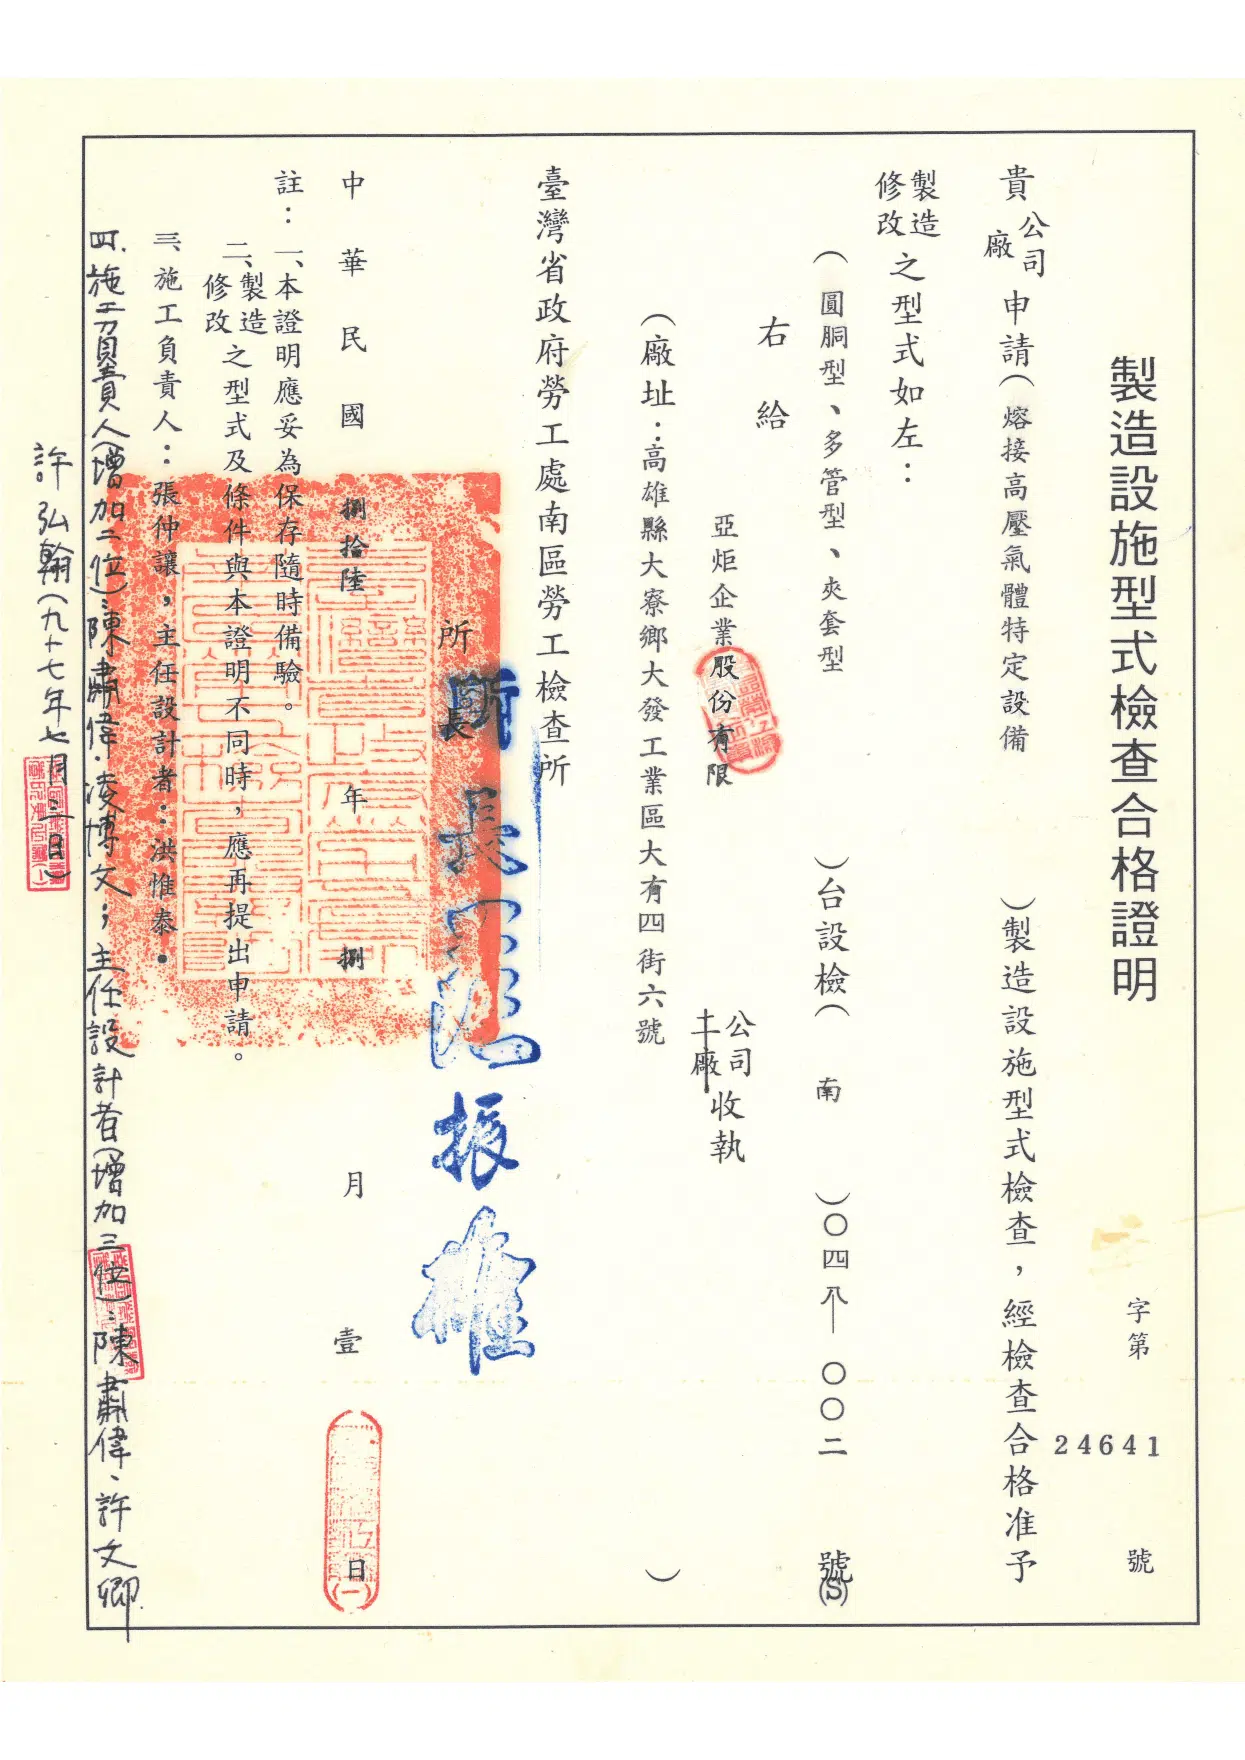 製造設施型式檢查合格證明
字第 24641 號
貴公司廠申請(熔接高壓氣體特定設備)製造設施型式檢查,經檢查合格准予
製造修改之型式如左:
(圓胴型、多管型、夾套型)台設檢(南)〇四八—〇〇二號(S)
右給
亞炬企業股份有限公司廠收執
(廠址:高雄縣大寮鄉大發工業區大有四街六號)
臺灣省政府勞工處南區勞工檢查所
所長
所長 振雄
中華民國捌拾陸年捌月壹日
(一)
註:一、本證明應妥為保存隨時備驗。
二、製造修改之型式及條件與本證明不同時,應再提出申請。
三、施工負責人:張仲讓,主任設計者:洪惟泰。
四、施工負責人(增加二位):陳肅偉、凌博文;主任設計者(增加三位):陳肅偉、許文卿
許弘翰(九十七年七月三日)